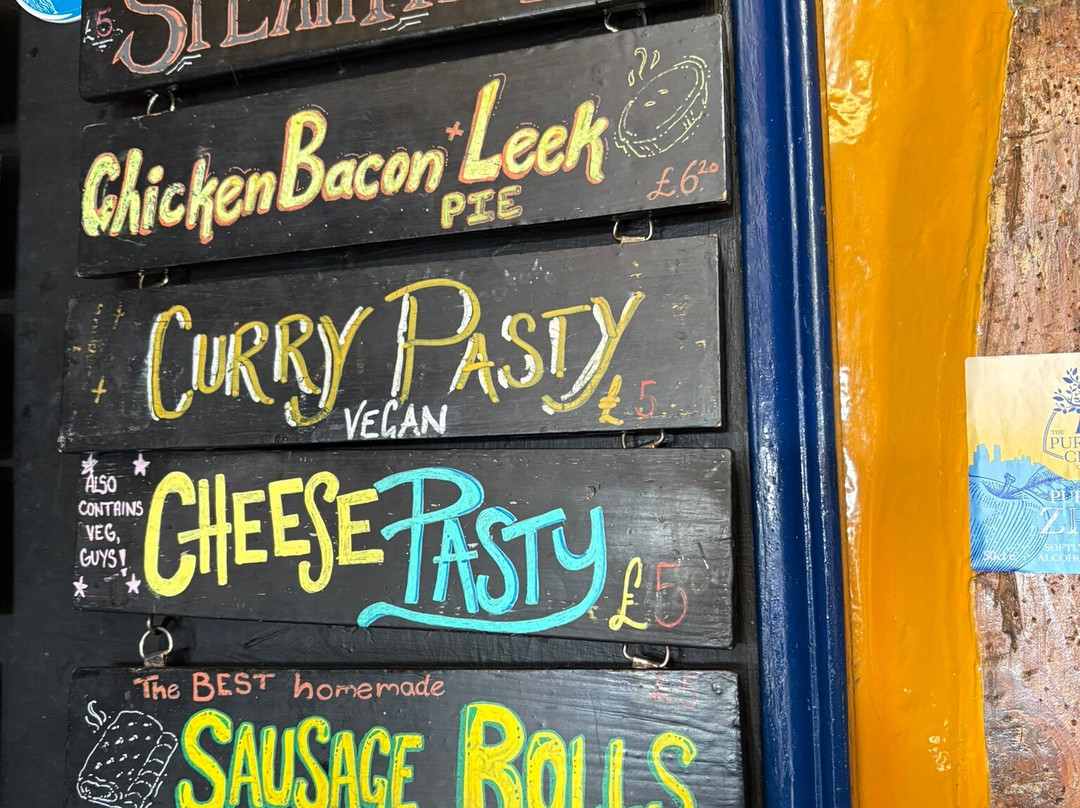 £5
Chicken Bacon + Leek
PIE
£6.20
CURRY PASTY
VEGAN
£5
ALSO
CONTAINS
VEG,
GUYS!
CHEESE PASTY
£5
The BEST homemade
SAUSAGE ROLLS
THE